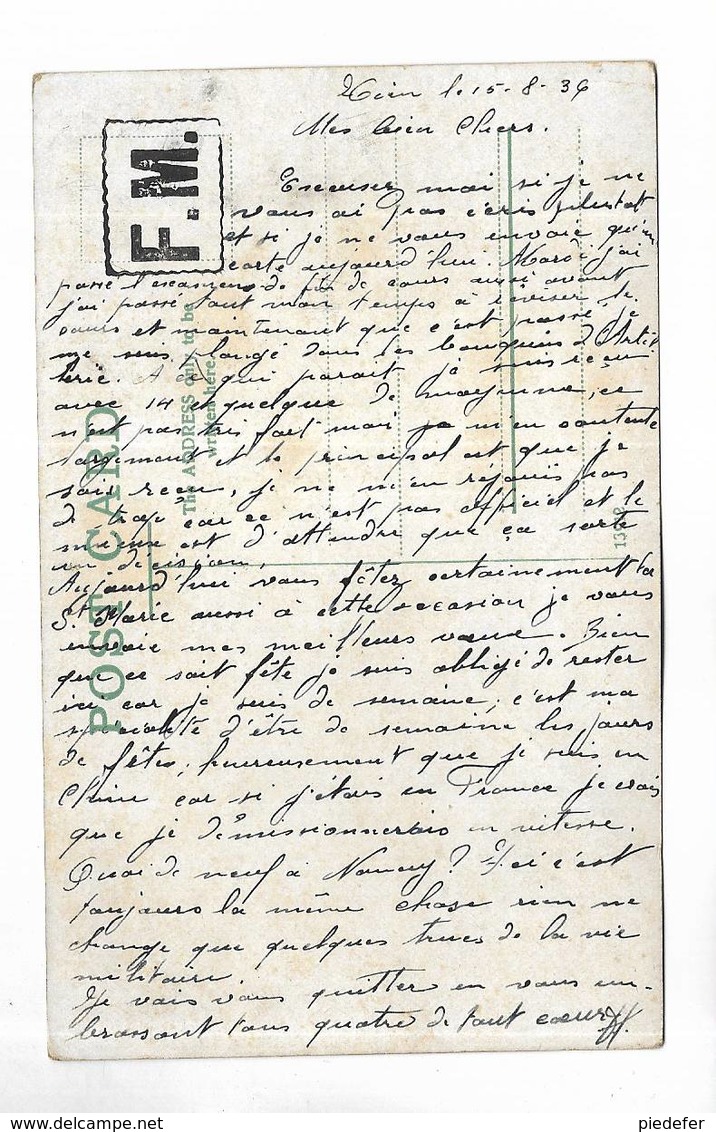 le 15-8-36
Mes bien Chers.
Excusez moi si je ne
vous ai pas écris plustot
et si je ne vous envoie qu'un
carte aujourd'hui. Mardi j'ai
passé l'examen de fin de cours aussi avant
j'ai passé tout mon temps à réviser le
cours et maintenant que c'est passé je
me suis plongé dans les bouquins d'Artil
lerie. A ce qui parait je suis reçu
avec 14 et quelque de moyenne, ce
n'est pas très fort mai je m'en contente
largement et le principal est que je
sois reçu, je ne m'en réjouis pas
de trop car ce n'est pas officiel et le
mieux est d'attendre que ça sorte
en décision.
Aujourd'hui vous fêtez certainement la
Ste Marie aussi à cette occasion je vous
envoie mes meilleurs vœux. Bien
que ce soit fête je suis obligé de rester
ici car je suis de semaine, c'est ma
spécialité d'être de semaine les jours
de fêtes, heureusement que je suis en
Chine car si j'étais en France je crois
que je démissionnerais en vitesse.
Quoi de neuf à Nancy? Ici c'est
toujours la même chose rien ne
change que quelques trucs de la vie
militaire
Je vais vous quitter en vous em-
brassant tous quatre de tout cœur
F.M.
POST CARD
The ADDRESS only to be
written here
piedefer